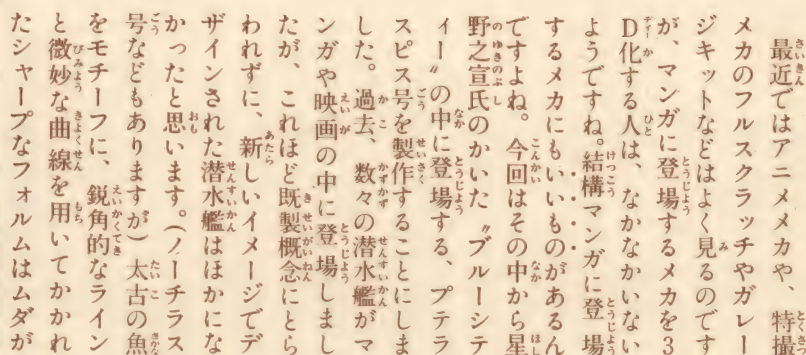 最近ではアニメメカや、特撮
メカのフルスクラッチやガレー
ジキットなどはよく見るのです
が、マンガに登場するメカを3
D化する人は、なかなかいない
ようですね。結構マンガに登場
するメカにもいいものがあるん
ですよね。今回はその中から星
野之宣氏のかいた〝ブルーシテ
ィー〟の中に登場する、プテラ
スピス号を製作することにしま
した。過去、数々の潜水艦がマ
ンガや映画の中に登場しまし
たが、これほど既製概念にとら
われずに、新しいイメージでデ
ザインされた潜水艦はほかにな
かったと思います。(ノーチラス
号などもありますが)太古の魚
をモチーフに、鋭角的なライン
と微妙な曲線を用いてかかれ
たシャープなフォルムはムダが